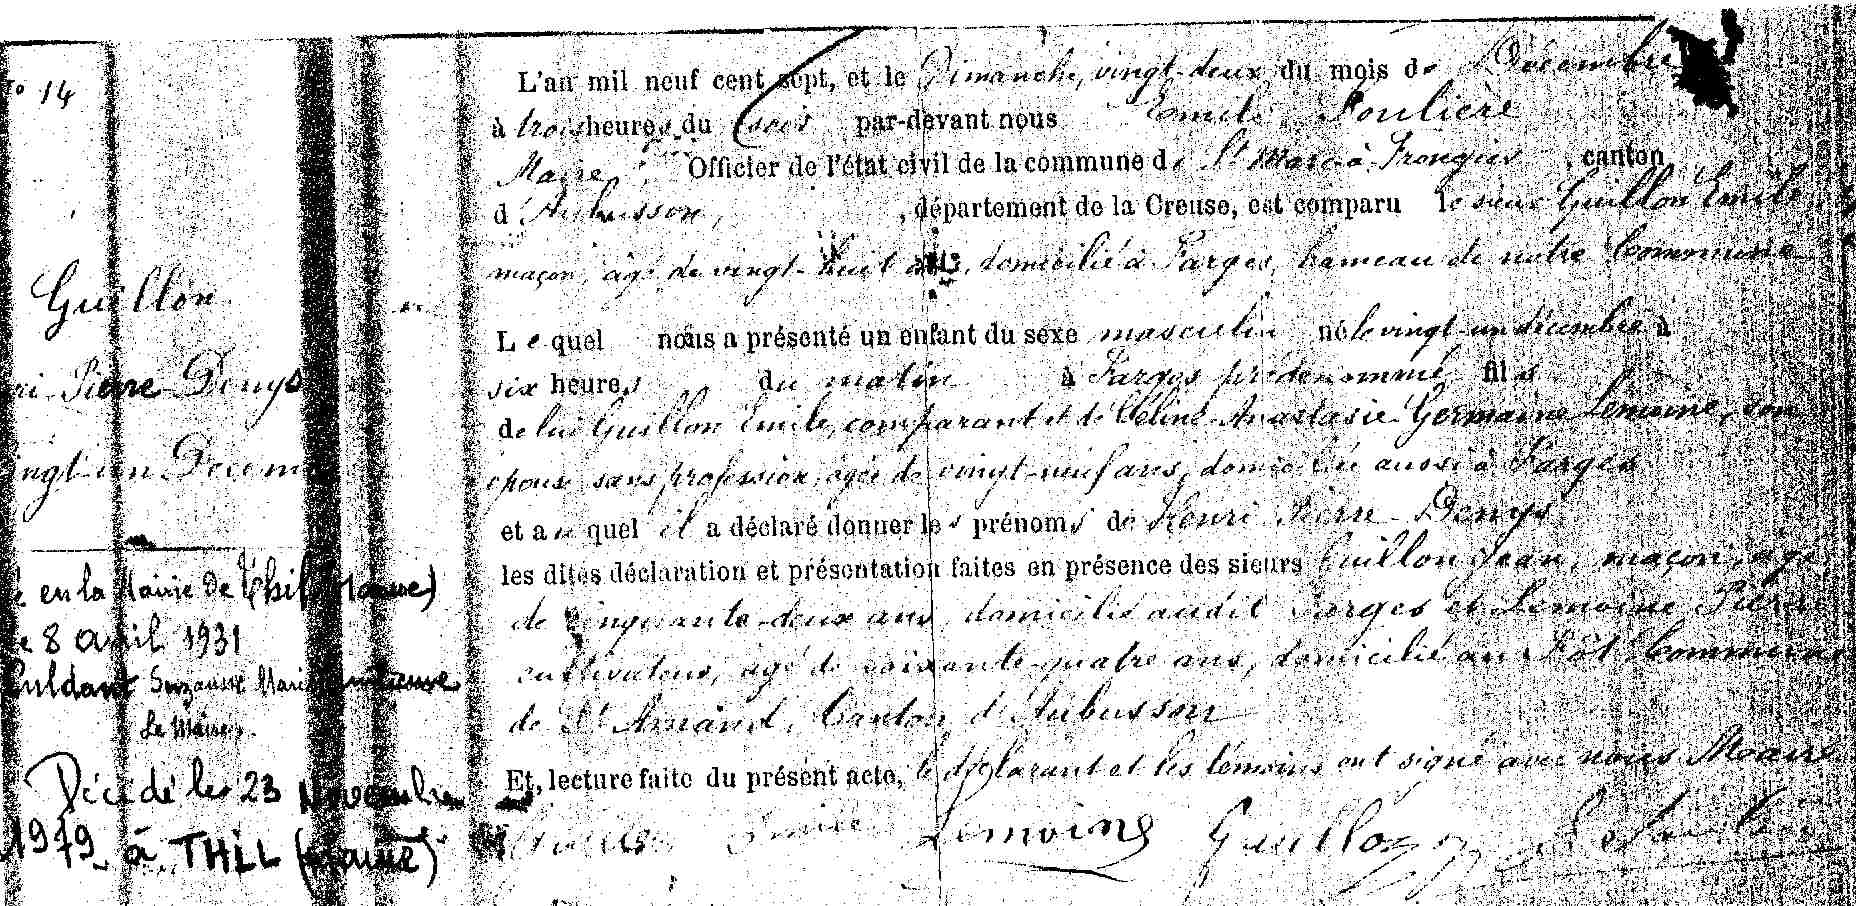 No 14
Guillon
Pierre Denys
vingt un Decem
en la Mairie de Thil (Marne)
le 8 avril 1931
Suzanne Marie
Le Maire,
Décédé le 23 Novembre
1979 à THIL (Marne)
L'an mil neuf cent sept, et le Dimanche, vingt-deux du mois de Décembre
à trois heures du soir par-devant nous Emile Foulière
Maire Officier de l'état civil de la commune de St Marc à Frongier, canton
d'Aubusson, département de la Creuse, est comparu le sieur Guillon Emile
maçon, âgé de vingt-huit ans, domicilié à Farges, hameau de notre Commune
Lequel nous a présenté un enfant du sexe masculin né le vingt-un décembre à
six heures du matin à Farges prédénommé fils
de lui Guillon Emile, comparant et de Céline Anastasie Germaine Lemoine, son
épouse sans profession, âgée de vingt-neuf ans, domiciliée aussi à Farges
et auquel il a déclaré donner les prénoms de Henri Pierre Denys
les dites déclaration et présentation faites en présence des sieurs Guillon Jean, maçon, âgé
de cinquante-deux ans, domicilié audit Farges et Lemoine Pierre
cultivateur, âgé de soixante-quatre ans, domicilié au Commune
de St Amand, Canton d'Aubusson
Et, lecture faite du présent acte, le déclarant et les témoins ont signé avec nous Maire
Lemoine Guillon